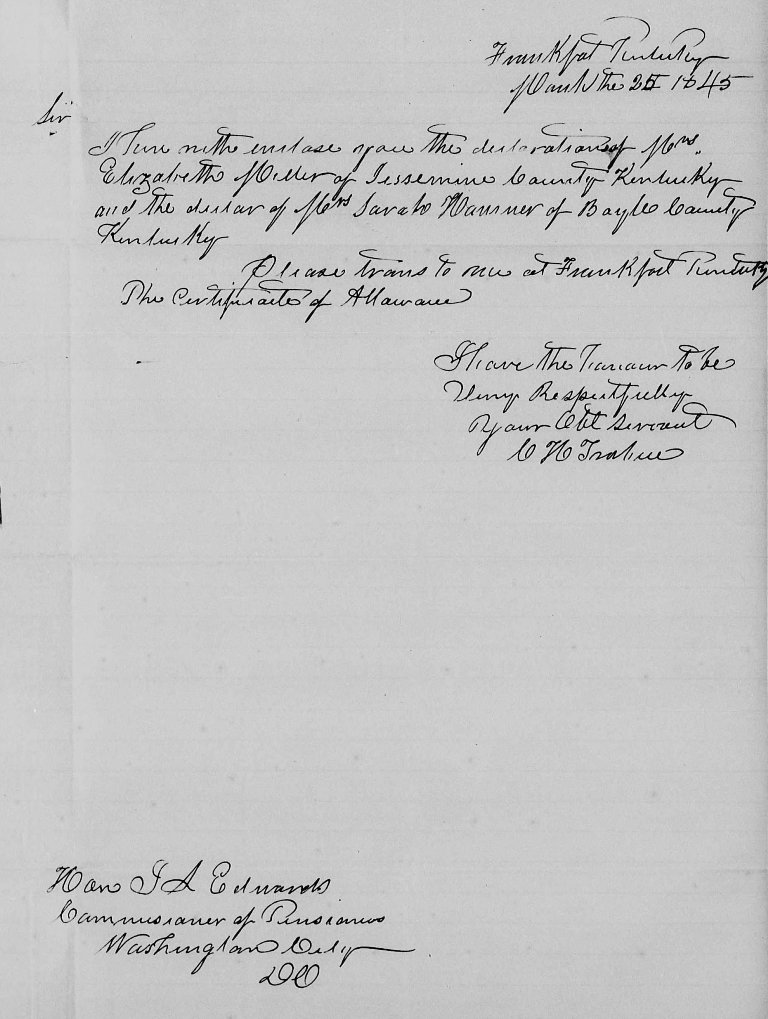 Frankfort Kentucky
March the 25 1845
Sir
I here with enclose you the decleration of Mrs.
Elizabeth Miller of Jessemine County Kentucky
and the declar of Mrs Sarah of Boyle County
Kentucky
Please trans to me at Frankfort Kentucky
The Certificates of Allowance
I have the honour to be
Very Respectfully
Your Obt servant
C H
Hon J L Edwards
Commissioner of Pensions
Washington City
DC